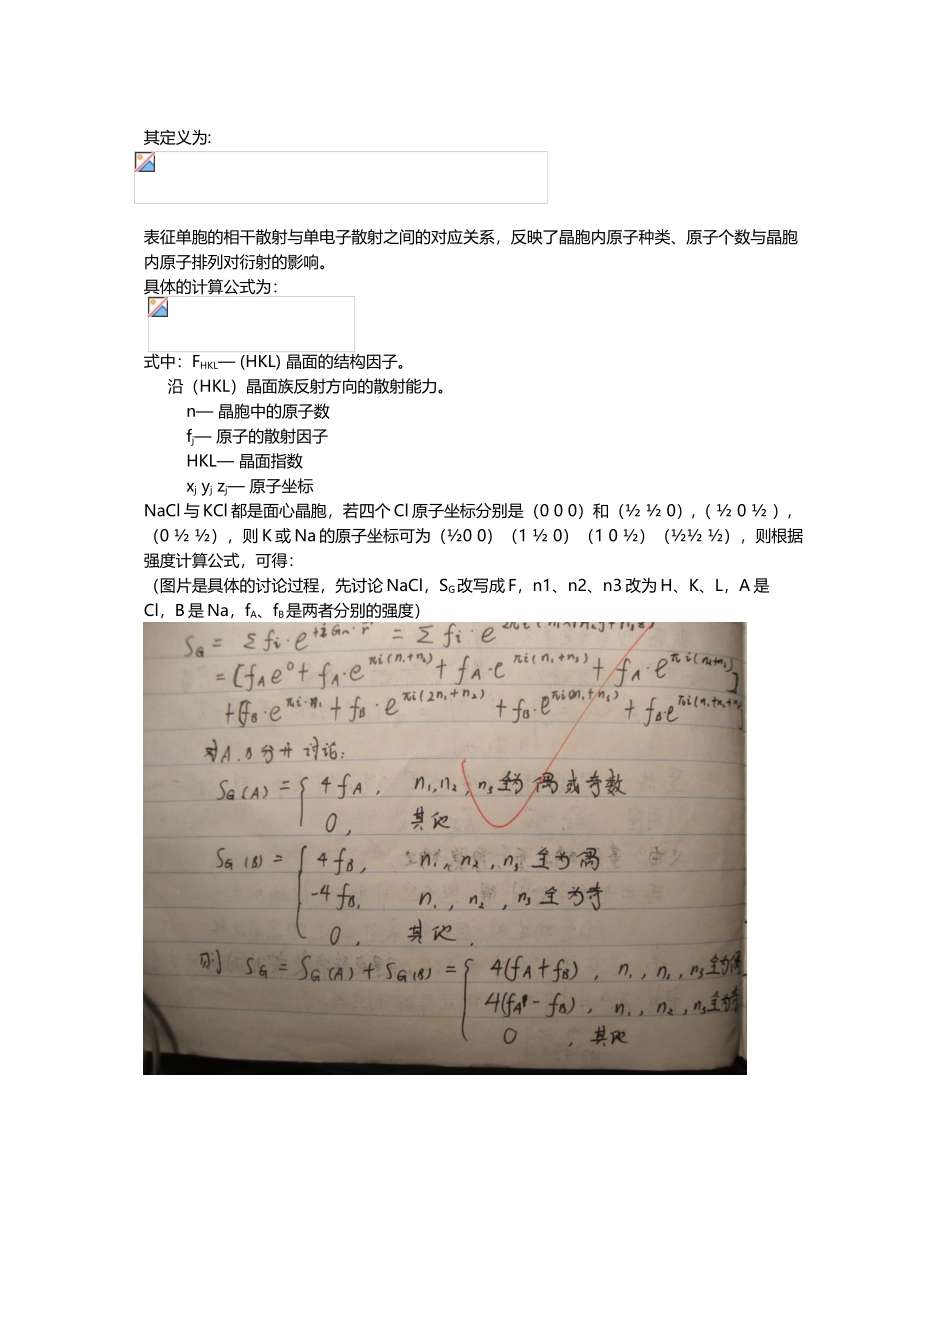 其定义为:
表征单胞的相干散射与单电子散射之间的对应关系，反映了晶胞内原子种类、原子个数与晶胞
内原子排列对衍射的影响。
具体的计算公式为：
式中：FHKL— (HKL) 晶面的结构因子。
沿（HKL）晶面族反射方向的散射能力。
n— 晶胞中的原子数
fj— 原子的散射因子
HKL— 晶面指数
xj yj zj— 原子坐标
NaCl 与 KCl 都是面心晶胞，若四个 Cl 原子坐标分别是（0 0 0）和（½ ½ 0），（ ½ 0 ½ ），
（0 ½ ½），则 K 或 Na 的原子坐标可为（½0 0）（1 ½ 0）（1 0 ½）（½½ ½），则根据
强度计算公式，可得：
（图片是具体的讨论过程，先讨论 NaCl，SG改写成 F，n1、n2、n3 改为 H、K、L，A 是
Cl，B 是 Na，fA、fB是两者分别的强度）
SG = Σ fi·e = Σ fi·e
= [fA e⁰ + fA·e^πi(n₁+n₂) + fA·e^πi(n₁+n₃) + fA·e^πi(n₂+n₃)]
+[fB·e^πi·n₁ + fB·e^πi(2n₁+n₂) + fB·e + fB·e
对A.B分开讨论:
SG(A) = { 4fA, n₁,n₂,n₃全为偶或奇数
0, 其他
SG(B) = { 4fB, n₁,n₂,n₃全为偶
-4fB, n₁,n₂,n₃全为奇
0, 其他.
则 SG = SG(A) + SG(B) = { 4(fA+fB), n₁,n₂,n₃全为偶
4(fA-fB), n₁,n₂,n₃全为奇
0 ,其他